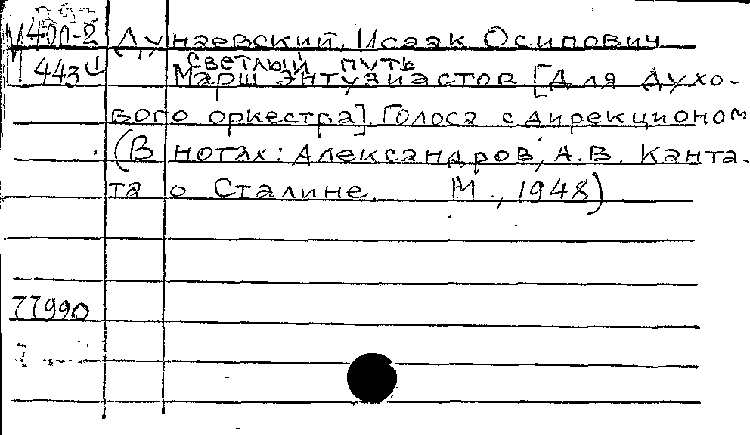 М 400-2 Дунаевский, Исаак Осипович
светлый путь
443 Марш энтузиастов [Для духо-
вого оркестра]. Голоса с дирекционом
(В нотах: Александров, А.В. Канта-
та о Сталине. М., 1948)
77990